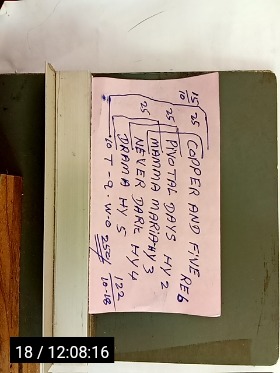 15 25 COPPER AND FIVE RE6
10
25 PIVOTAL DAYS HY 2
MAMMA MARIA HY 3
25 NEVER DARE HY 4
DRAMA HY 5
10 T - 2 - W-0 25 122
10-18
18 / 12:08:16